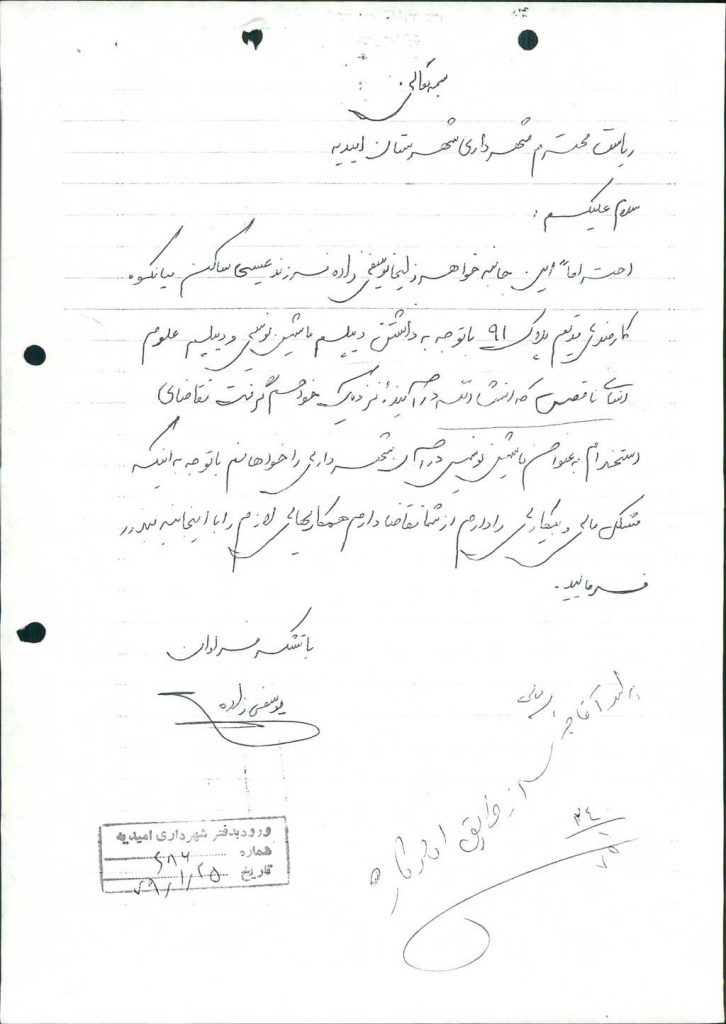 بسمه تعالی
ریاست محترم شهرداری شهرستان امیدیه
سلام علیکم :
احتراماً این جانبه خواهر زلیخا یوسفی زاده فرزند عیسی ساکن میانکوه
کارمندی قدیم پلاک ۹۱ با توجه به داشتن دیپلم ماشین نویسی و دیپلم علوم
انسانی ناقص که انشاءالله در آینده نزدیک خواهم گرفت تقاضای
استخدام به عنوان ماشین نویس در آن شهرداری را خواهانم با توجه به اینکه
مشکل مالی و بیکاری را دارم از شما تقاضا دارم همکاریهای لازم را با اینجانبه مبذول
فرمایید.
با تشکر فراوان
یوسفی زاده
ورود بدفتر شهرداری امیدیه
شماره ۶۸۶
تاریخ ۷۹/۱/۲۵